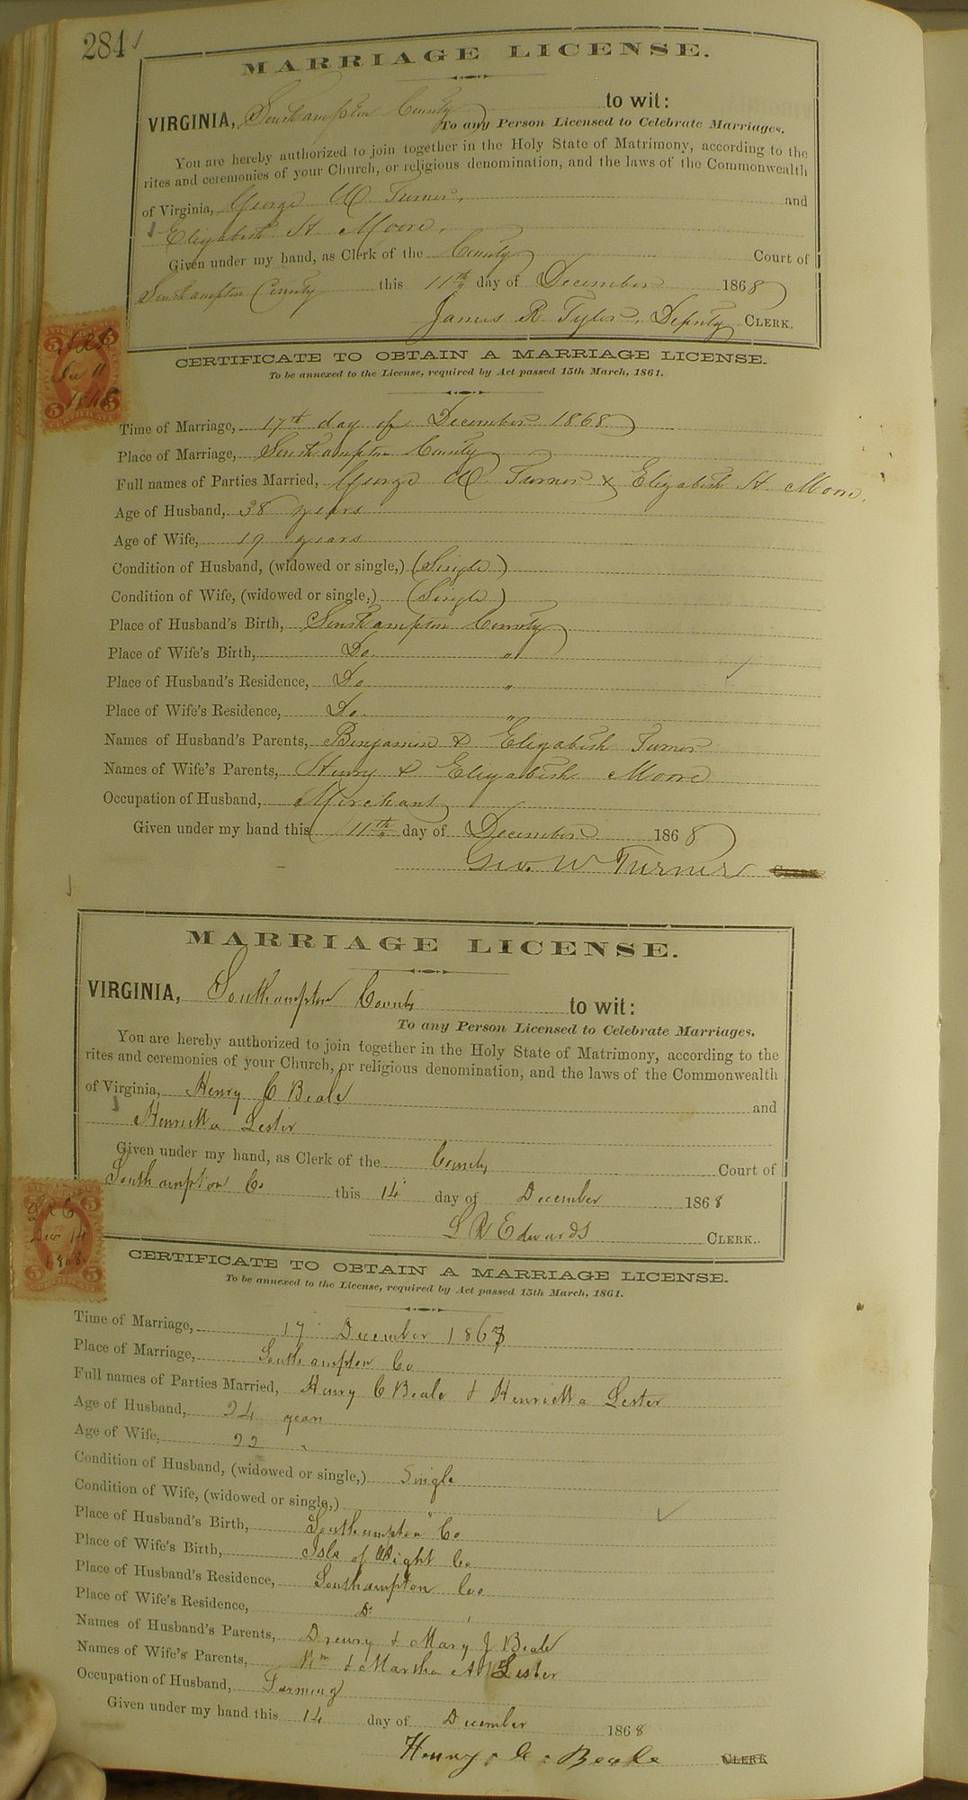 284
MARRIAGE LICENSE.
VIRGINIA, Southampton County to wit:
To any Person Licensed to Celebrate Marriages.
You are hereby authorized to join together in the Holy State of Matrimony, according to the
rites and ceremonies of your Church, or religious denomination, and the laws of the Commonwealth
of Virginia, George W. Turner, and
Elizabeth H. Moore,
Given under my hand, as Clerk of the County Court of
Southampton County this 11th day of December 1868
James R Tyler, Deputy CLERK.
CERTIFICATE TO OBTAIN A MARRIAGE LICENSE.
To be annexed to the License, required by Act passed 15th March, 1861.
Time of Marriage, 17th day of December 1868
Place of Marriage, Southampton County
Full names of Parties Married, George W. Turner & Elizabeth H. Moore,
Age of Husband, 38 years
Age of Wife, 19 years
Condition of Husband, (widowed or single,) (Single)
Condition of Wife, (widowed or single,) (Single)
Place of Husband's Birth, Southampton County
Place of Wife's Birth, Do "
Place of Husband's Residence, Do "
Place of Wife's Residence, Do. "
Names of Husband's Parents, Benjamin & Elizabeth Turner
Names of Wife's Parents, Henry & Elizabeth Moore
Occupation of Husband, Merchant
Given under my hand this 11th day of December 1868
Geo. W Turner CLERK
MARRIAGE LICENSE.
VIRGINIA, Southampton County to wit:
To any Person Licensed to Celebrate Marriages.
You are hereby authorized to join together in the Holy State of Matrimony, according to the
rites and ceremonies of your Church, or religious denomination, and the laws of the Commonwealth
of Virginia, Henry C Beale and
Henrietta Lester
Given under my hand, as Clerk of the County Court of
Southampton Co this 14 day of December 1868
L R Edwards CLERK.
L R E
Dec 14
1868
CERTIFICATE TO OBTAIN A MARRIAGE LICENSE.
To be annexed to the License, required by Act passed 15th March, 1861.
Time of Marriage, 17 December 1868
Place of Marriage, Southampton Co
Full names of Parties Married, Henry C Beale & Henrietta Lester
Age of Husband, 24 years
Age of Wife, 22 "
Condition of Husband, (widowed or single,) Single
Condition of Wife, (widowed or single,) "
Place of Husband's Birth, Southampton Co
Place of Wife's Birth, Isle of Wight Co
Place of Husband's Residence, Southampton Co
Place of Wife's Residence, Do "
Names of Husband's Parents, Drewry & Mary J Beale
Names of Wife's Parents, Wm & Martha A Lester
Occupation of Husband, Farming
Given under my hand this 14 day of December 1868
Henry. C. Beale CLERK